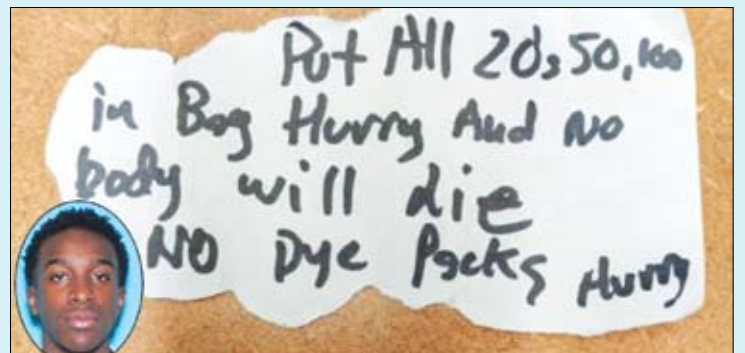 Put All 20s 50, 100
in Bag Hurry And No
body will die
NO Dye Packs Hurry